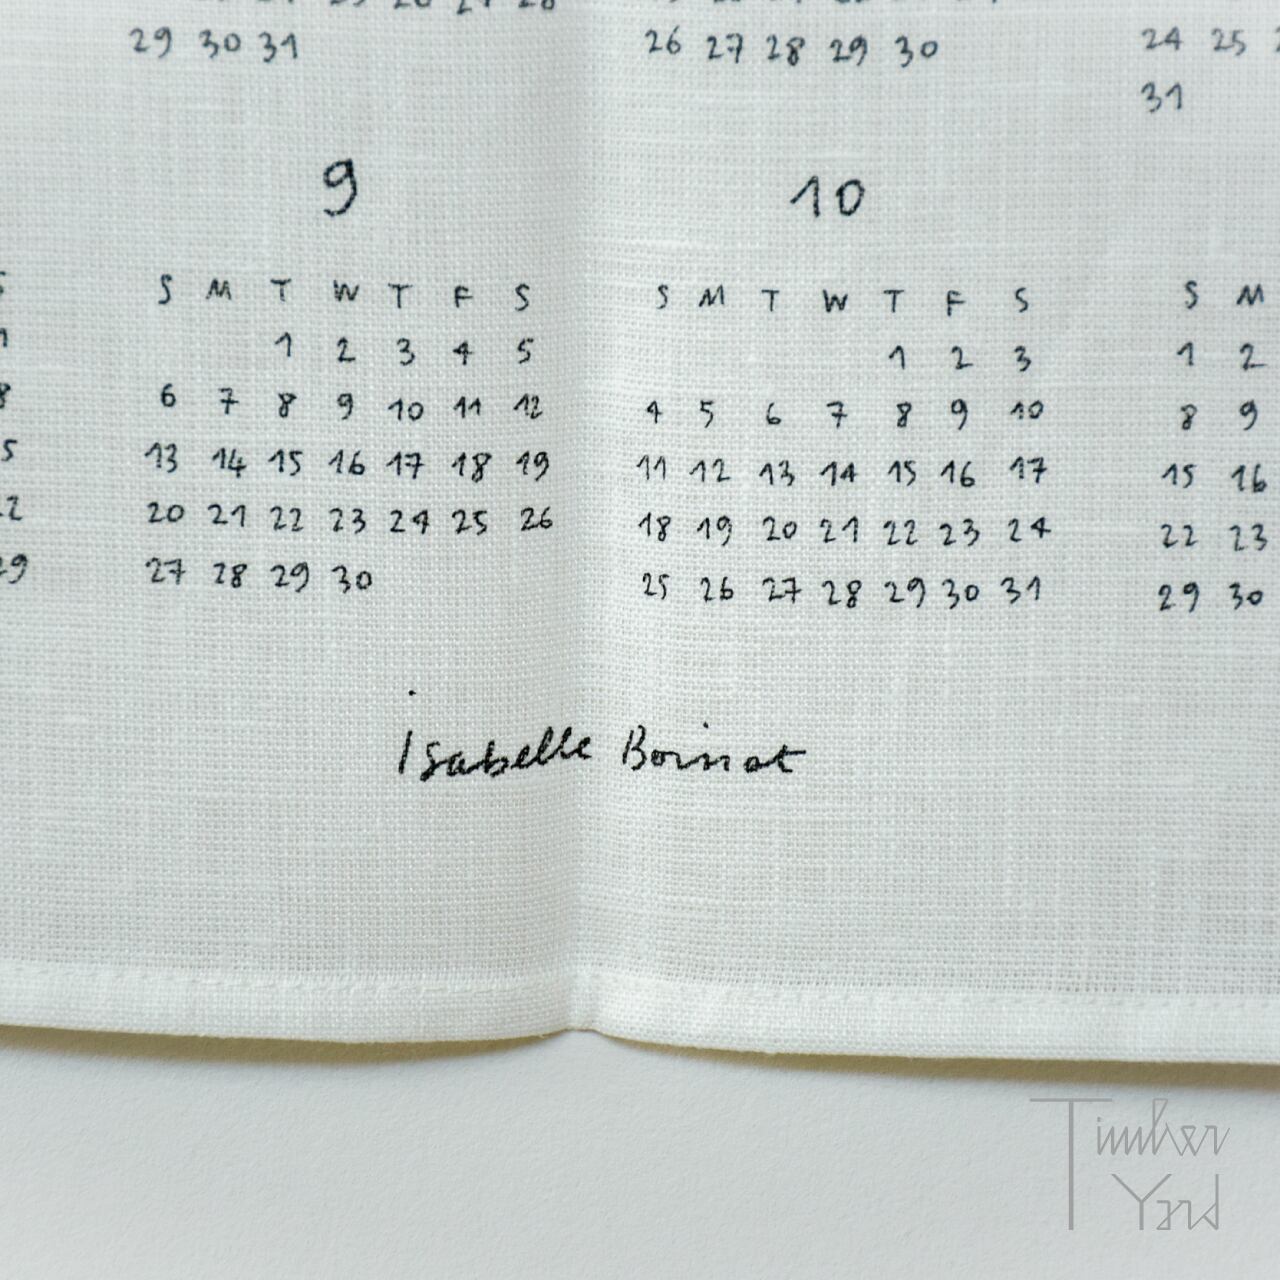 29 30 31
26 27 28 29 30
24 25
31
9
S M T W T F S
1 2 3 4 5
6 7 8 9 10 11 12
13 14 15 16 17 18 19
20 21 22 23 24 25 26
27 28 29 30
10
S M T W T F S
1 2 3
4 5 6 7 8 9 10
11 12 13 14 15 16 17
18 19 20 21 22 23 24
25 26 27 28 29 30 31
S M
1 2
8 9
15 16
22 23
29 30
Isabelle Boinot
Timber
Yard